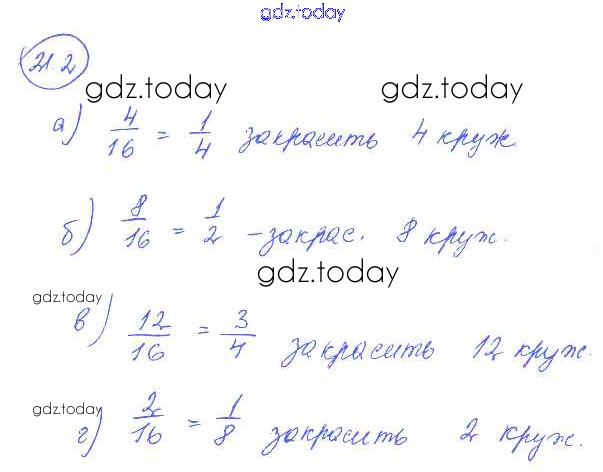 gdz.today
21.2
gdz.today gdz.today
а) 4/16 = 1/4 закрасить 4 круж
б) 8/16 = 1/2 - закрас. 8 круж.
gdz.today
gdz.today
в) 12/16 = 3/4 закрасить 12 круж.
gdz.today
г) 2/16 = 1/8 закрасить 2 круж.